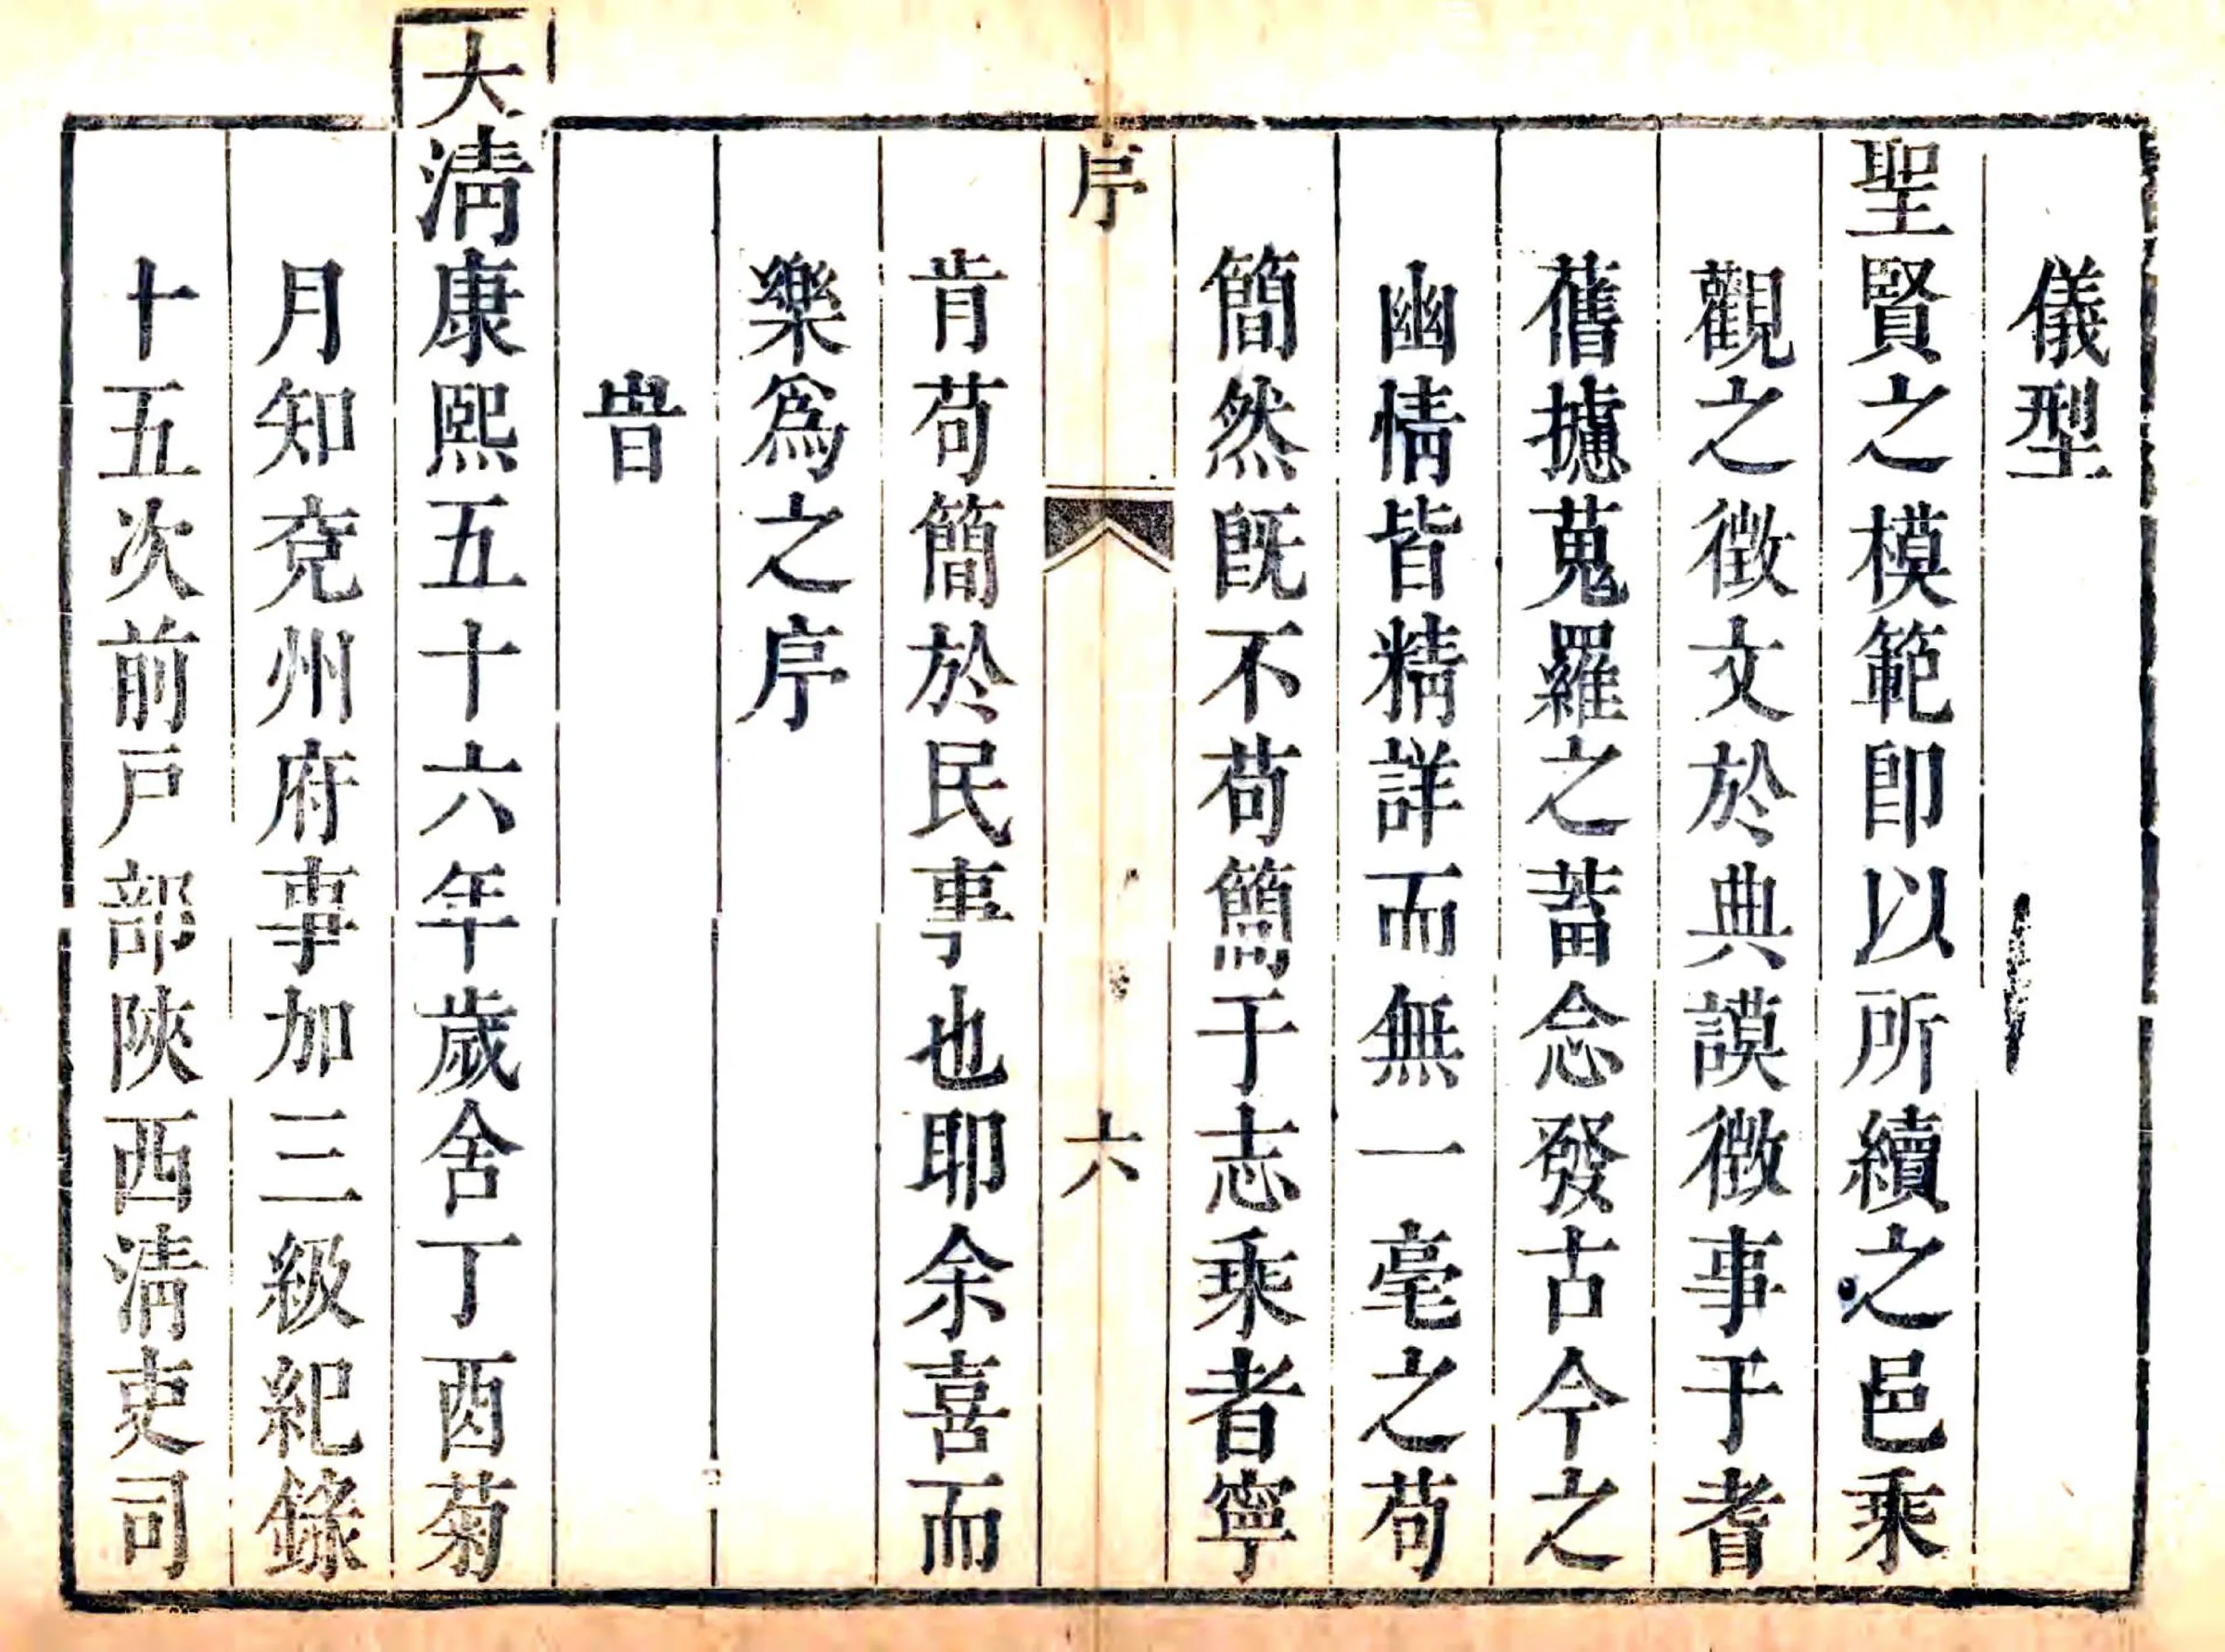 儀型
聖賢之模範卽以所續之邑乘
觀之徵文於典謨徵事于耆
舊攄蒐羅之蓄念發古今之
幽情皆精詳而無一毫之苟
簡然旣不苟簡于志乘者寧
序
六
肯苟簡於民事也耶余喜而
樂爲之序
旹
大淸康熙五十六年歲舍丁酉菊
月知兗州府事加三級紀錄
十五次前戸部陝西淸吏司